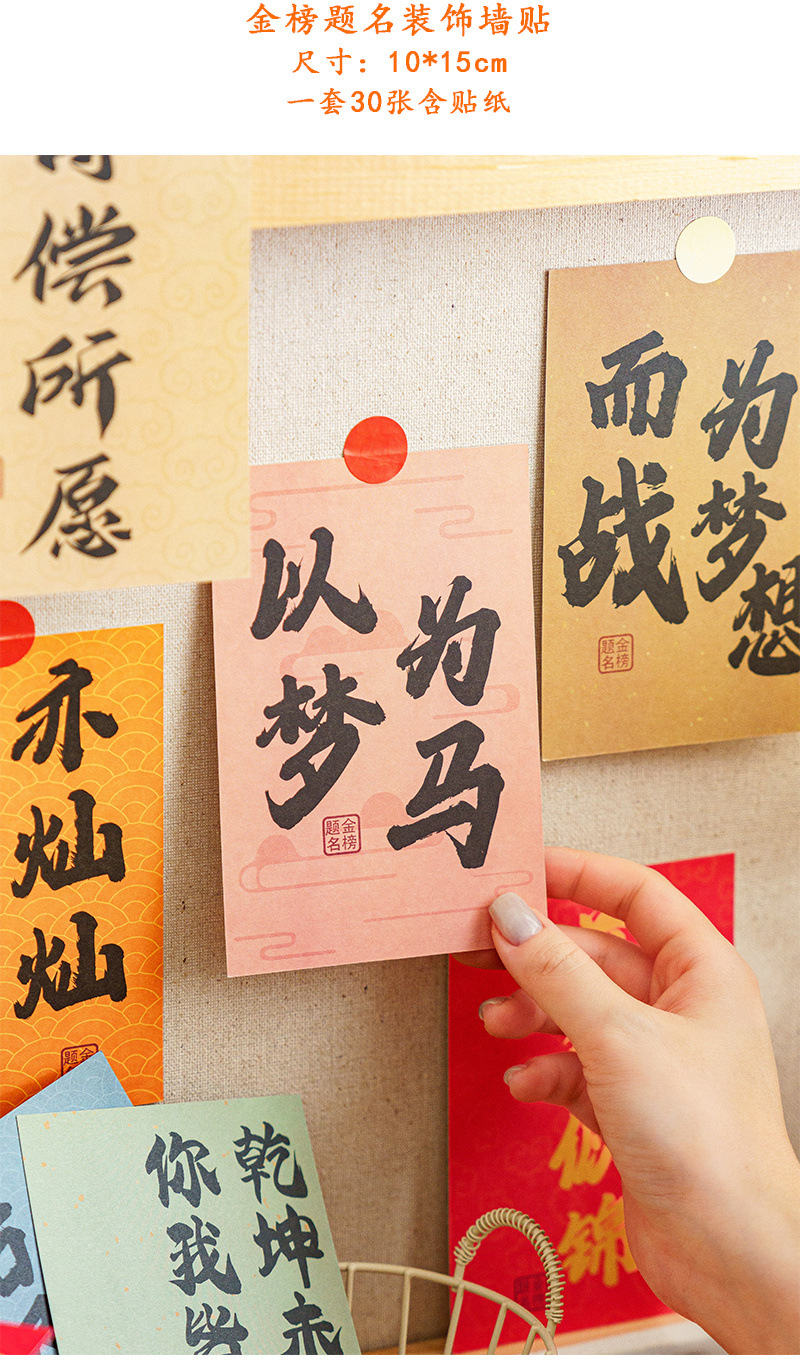 金榜题名装饰墙贴
尺寸：10*15cm
一套30张含贴纸
偿所愿
为梦想
而战
金榜
题名
以梦
为马
金榜
题名
亦灿灿
乾坤未
你我皆
似锦